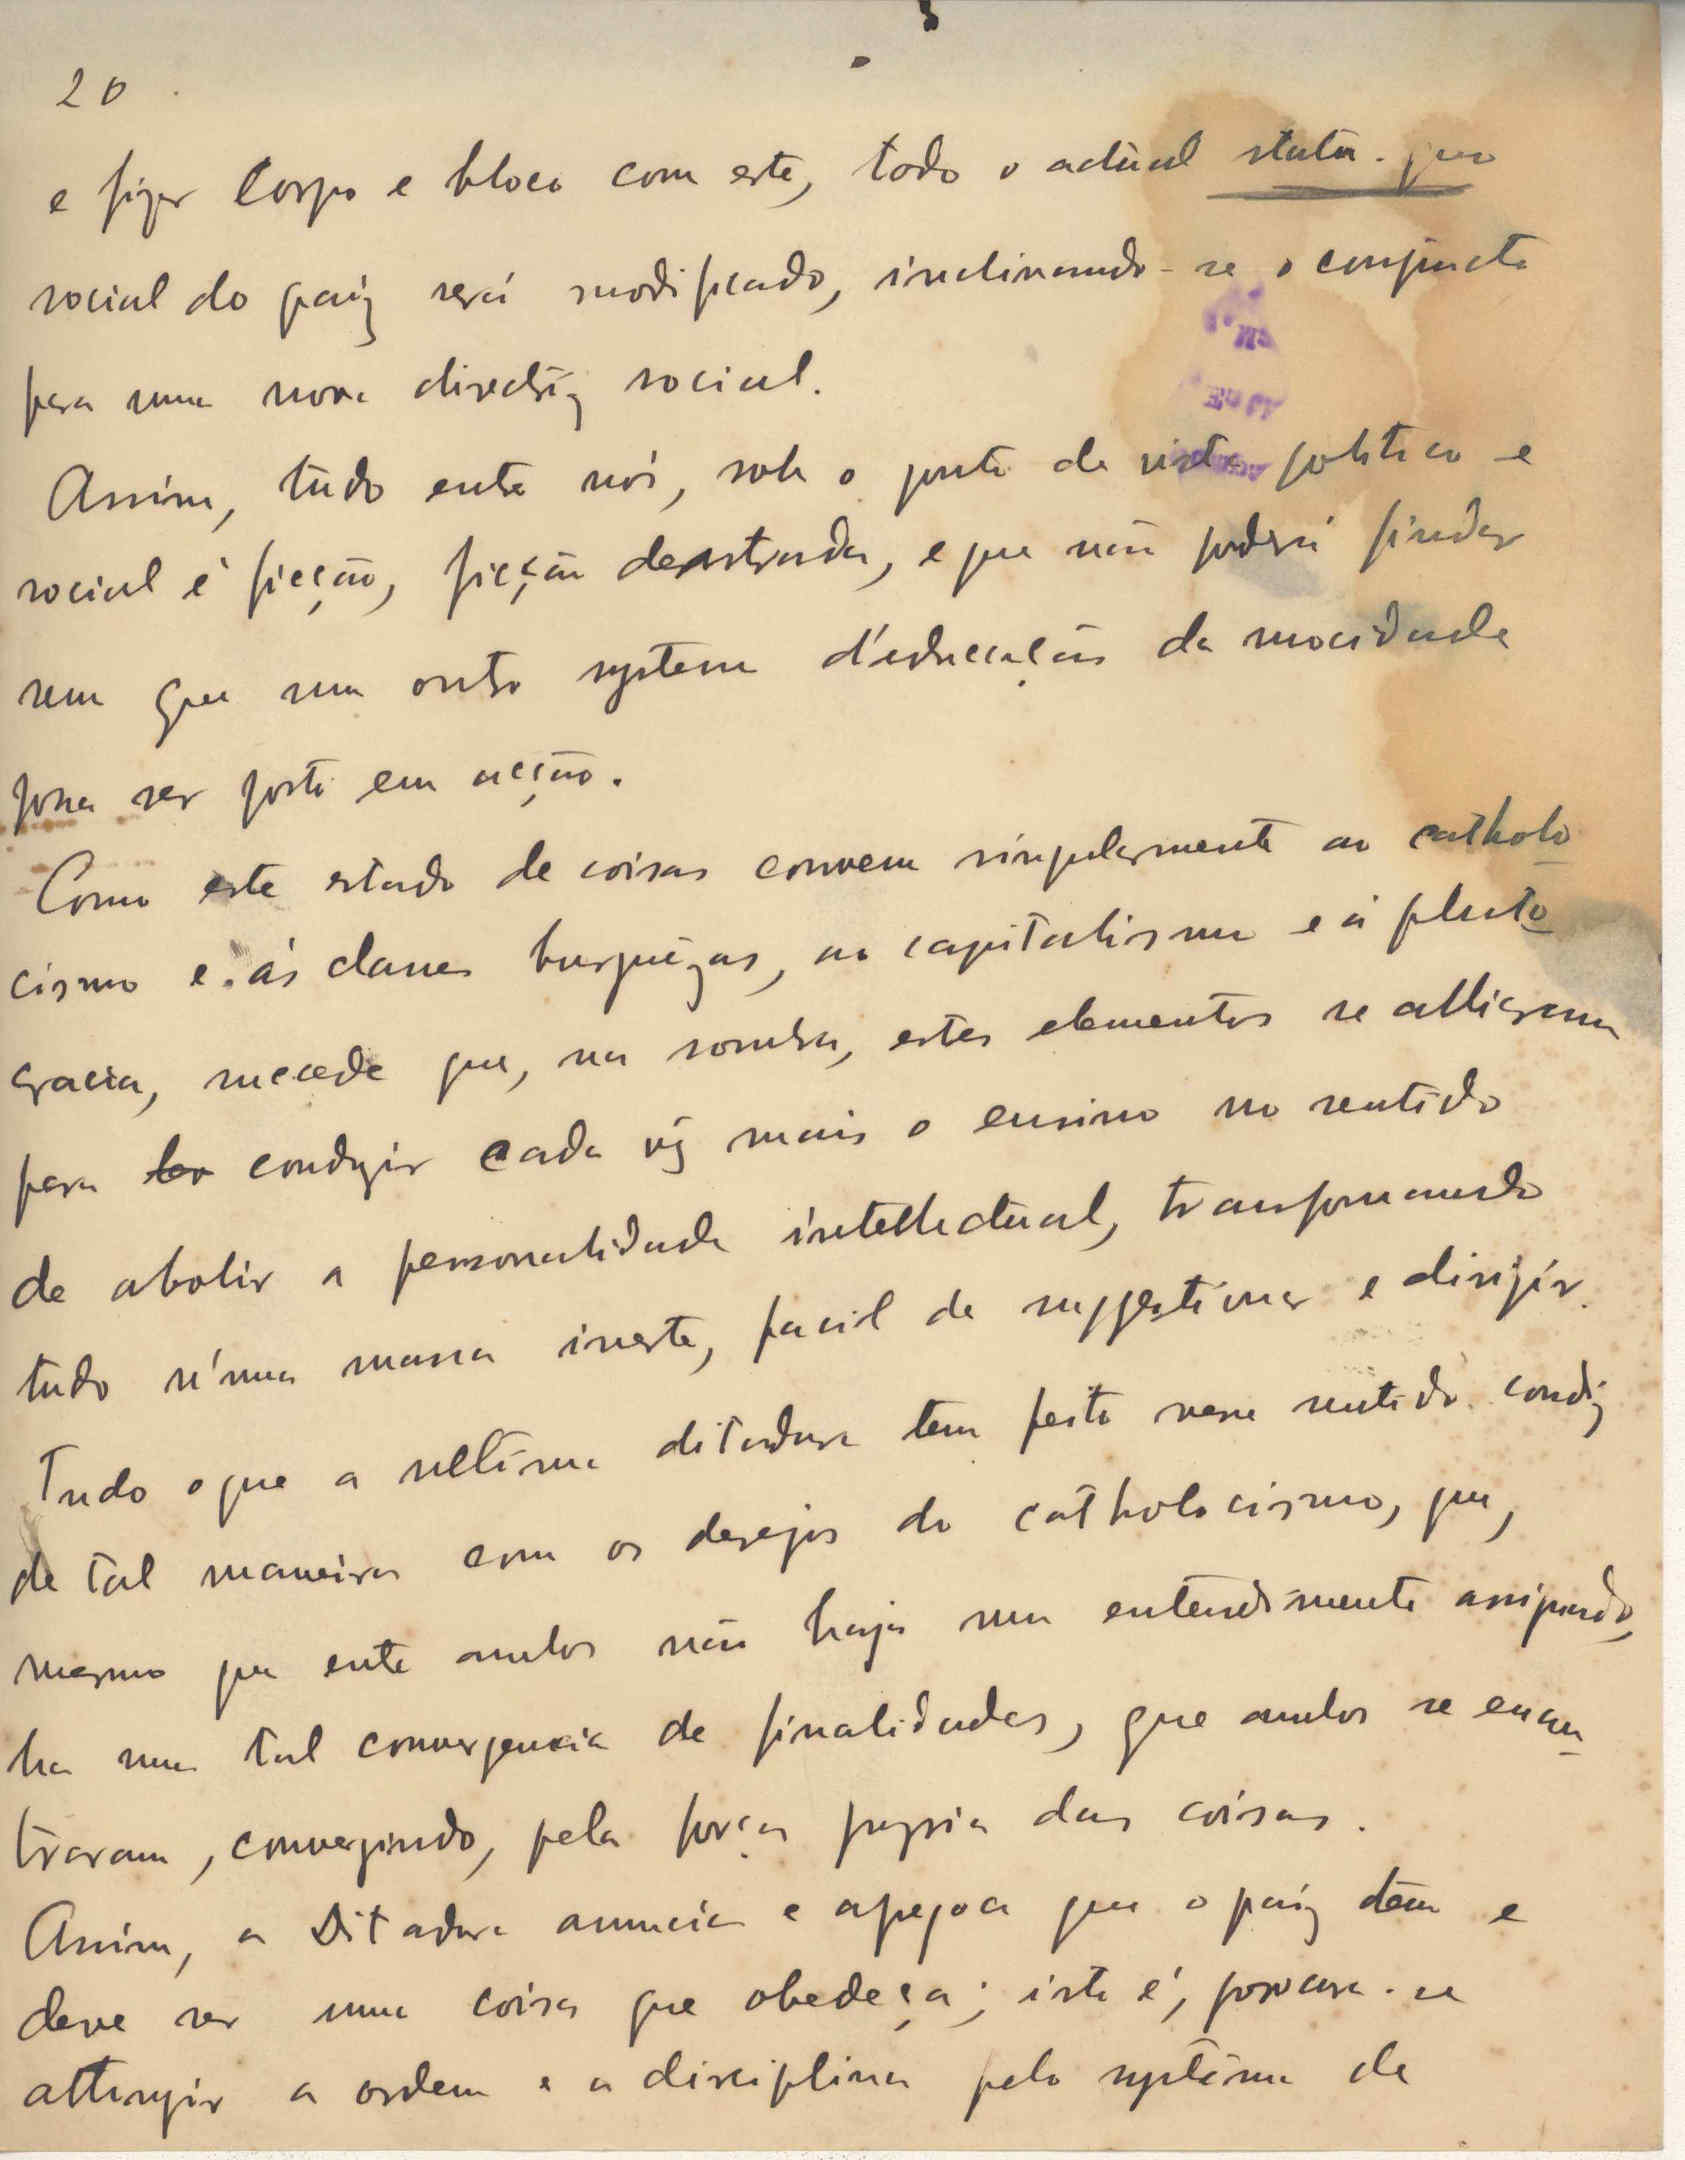 20
e fizer corpo e bloco com este, todo o actual statu-quo
social do paiz será modificado, inclinando-se o conjuncto
para uma nova directriz social.
Assim, tudo entre nós, sob o ponto de vista politico e
social é ficção, ficção desastrada, e que não poderá findar
sem que um outro systema d'educação da mocidade
possa ser posto em acção.
Como este estado de coisas convem singularmente ao catholo
cismo e ás classes burguêzas, ao capitalismo e á pluto
cracia, succede que, na sombra, estes elementos se alliaram
para conduzir cada vez mais o ensino no sentido
de abolir a personalidade intellectual, transformando
tudo n'uma massa inerte, facil de suggestionar e dirigir.
Tudo o que a ultima ditadura tem feito nesse sentido condiz
de tal maneira com os desejos do catholocismo, que,
mesmo que entre ambos não haja um entendimento assignado,
ha uma tal convergencia de finalidades, que ambos se encon
traram, convergindo, pela força propria das coisas.
Assim, a Ditadura anuncia e apregoa que o paiz tem e
deve ser uma coisa que obedeça; isto é, procura-se
attingir a ordem e a disciplina pelo systema de